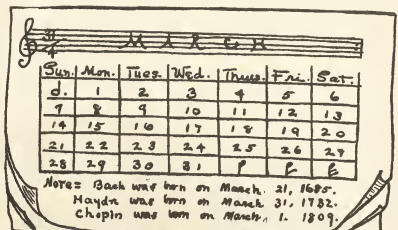 31
4
M A R C H
Sun. Mon. Tues. Wed. Thurs. Fri. Sat.
1 2 3 4 5 6
7 8 9 10 11 12 13
14 15 16 17 18 19 20
21 22 23 24 25 26 27
28 29 30 31
Note= Bach was born on March. 21, 1685.
Haydn was born on March 31, 1732.
Chopin was born on March, 1. 1809.